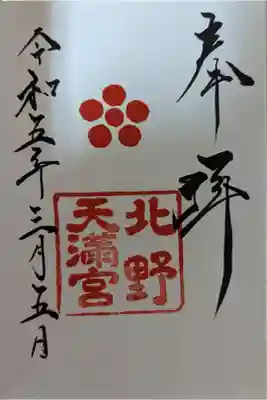 奉拝
北野
天満宮
令和五年三月五日